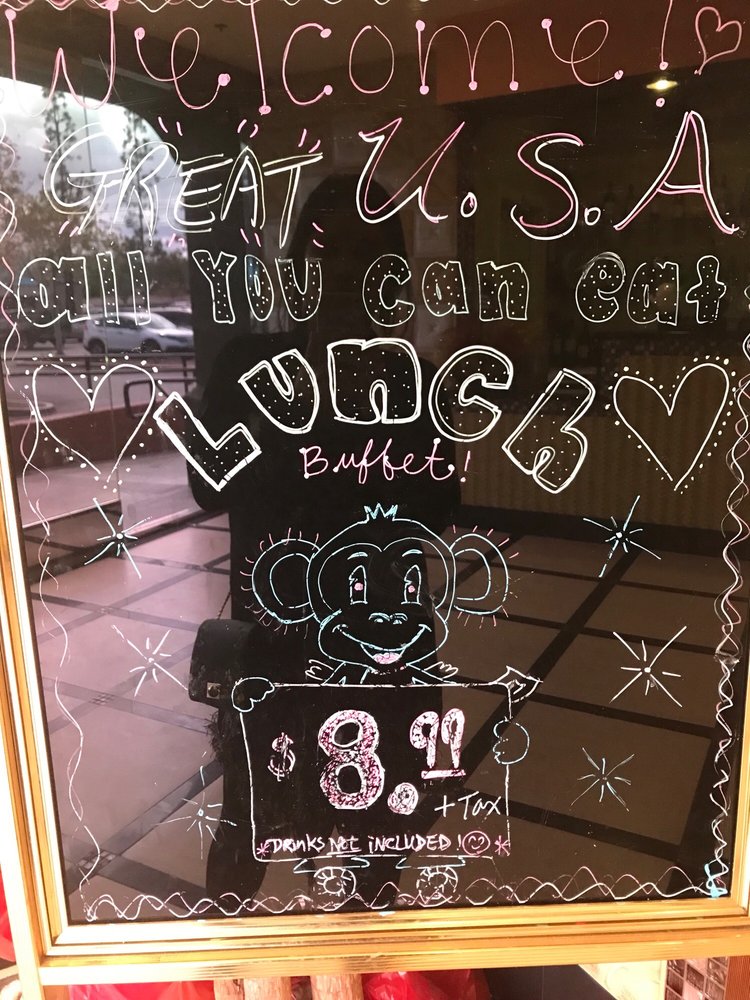 Welcome!
GREAT U.S.A
all YOU can eat
Lunch
Buffet!
$8.99
+ Tax
*DRINKS NOT INCLUDED! *